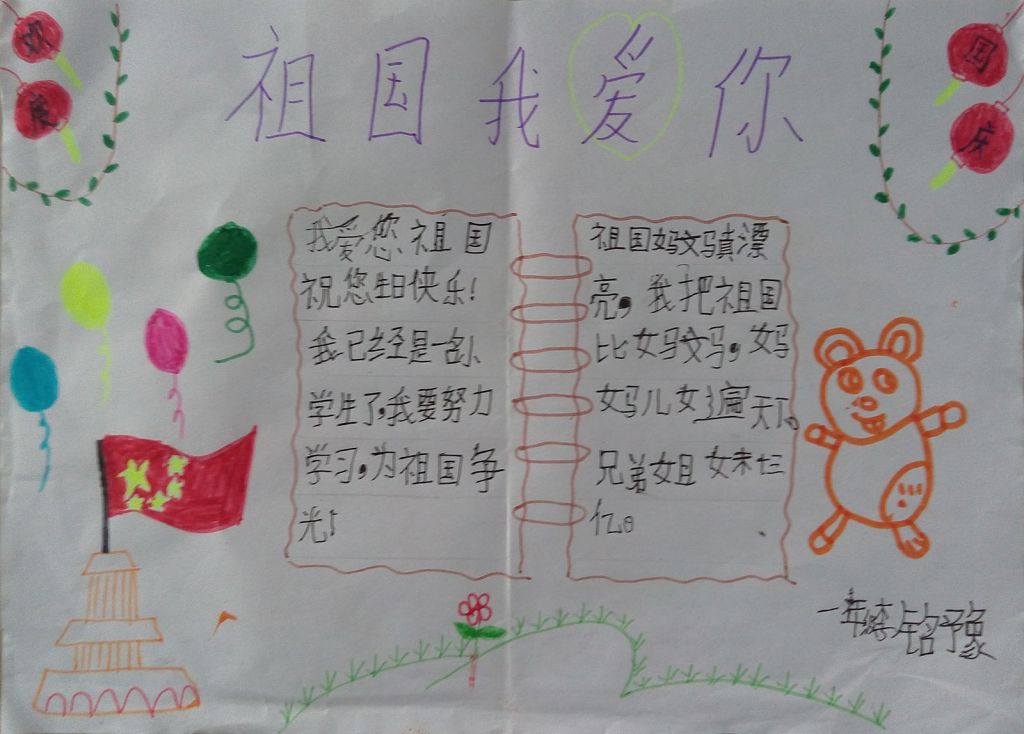 欢度
国庆
祖国我爱你
我爱您祖国
祝您生日快乐!
我已经是一名小
学生了,我要努力
学习,为祖国争
光!
祖国妈妈真漂
亮,我把祖国
比妈妈,妈
妈儿女遍天下。
兄弟姐妹十三
亿。
一年级 铭豫